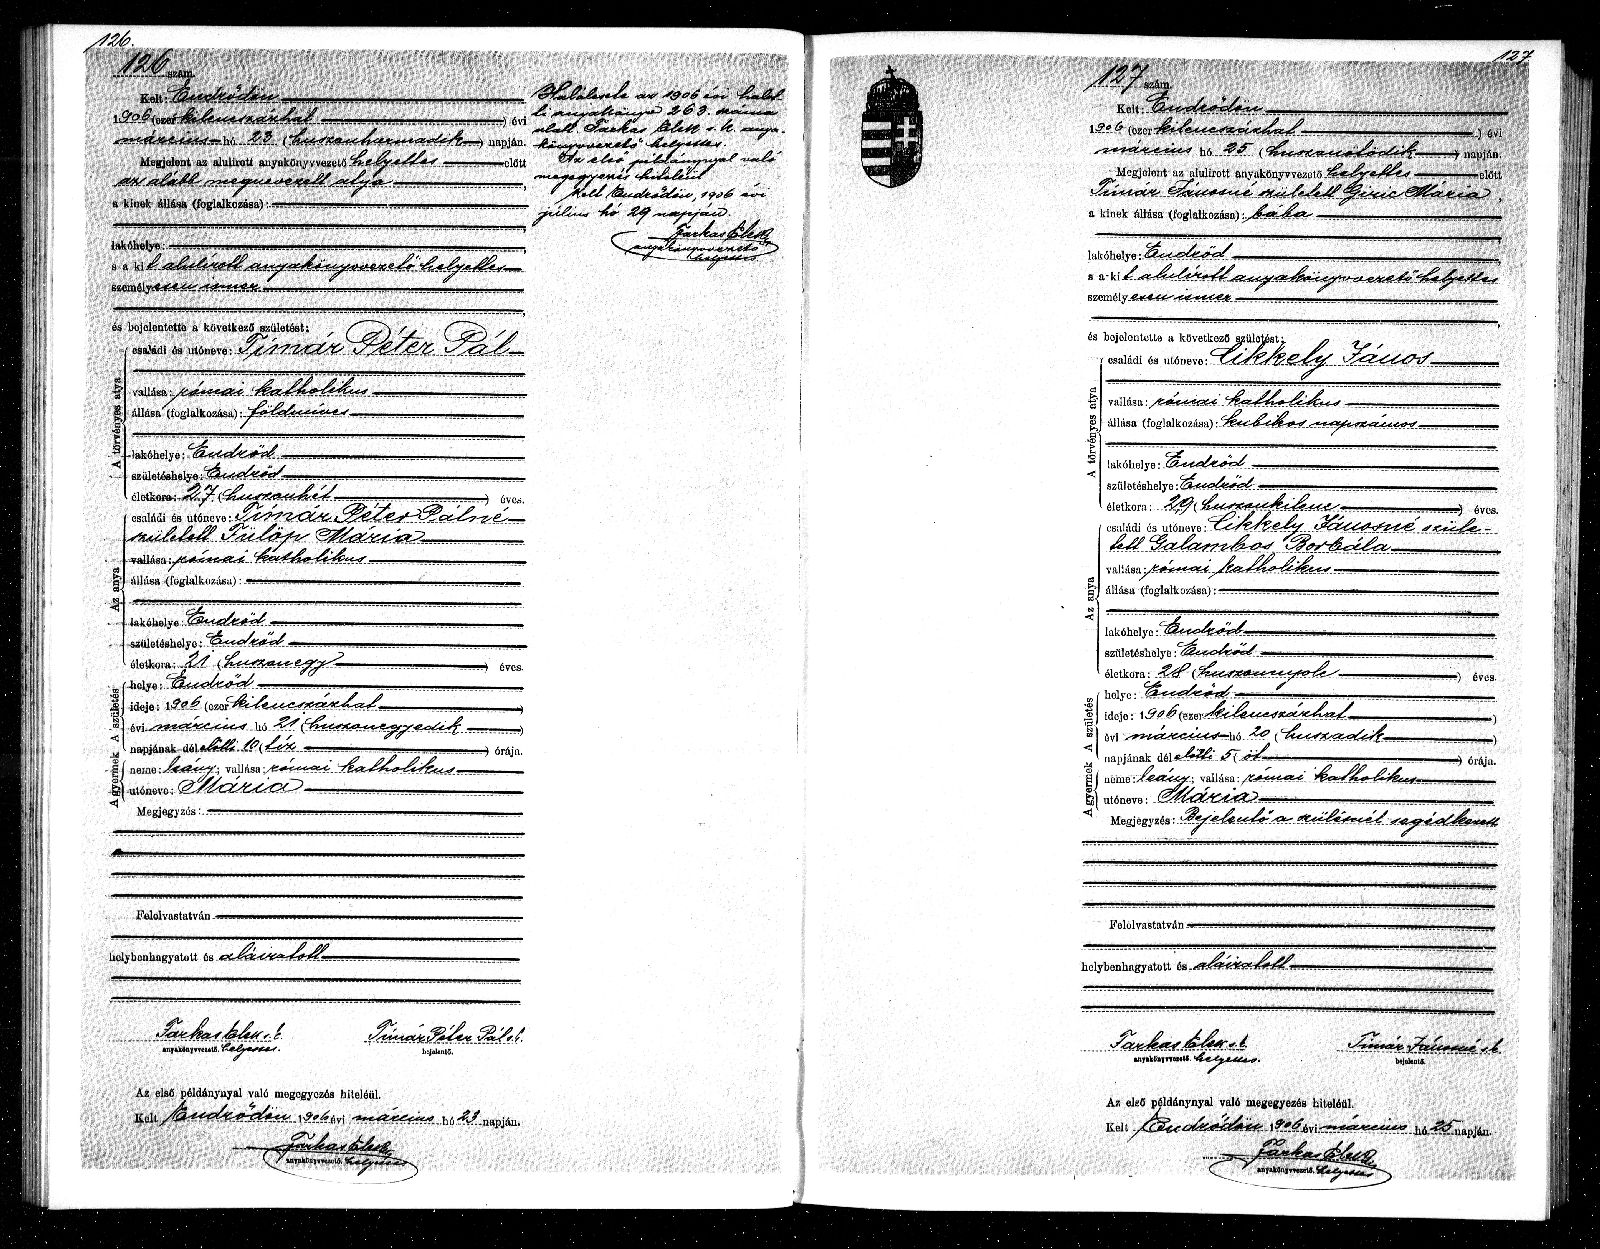 126.
126 szám.
Kelt: Endrődön
1906 (ezer kilencszázhat) évi
március hó 23 (huszonharmadik) napján.
Megjelent az alulirott anyakönyvvezető helyettes előtt
az alább megnevezett atya,
a kinek állása (foglalkozása):
lakóhelye:
s a kit alulírott anyakönyvvezető helyettes
személyesen ismer
és bejelentette a következő születést:
A törvényes atya
családi és utóneve: Tímár Péter Pál
vallása: római katholikus
állása (foglalkozása): földmíves
lakóhelye: Endrőd
születéshelye: Endrőd
életkora: 27 (huszonhét) éves.
Az anya
családi és utóneve: Tímár Péter Pálné
született Fülöp Mária
vallása: római katholikus
állása (foglalkozása):
lakóhelye: Endrőd
születéshelye: Endrőd
életkora: 21 (huszonegy) éves.
A születés
helye: Endrőd
ideje: 1906 (ezer kilencszázhat)
évi március hó 21 (huszonegyedik)
napjának délelőtti 10 (tíz) órája.
A gyermek
neme: leány; vallása: római katholikus
utóneve: Mária
Megjegyzés:
Felolvastatván
helybenhagyatott és aláiratott
Farkas Elek s. k. Tímár Péter Pál s. k.
anyakönyvvezető helyettes. bejelentő.
Az első példánynyal való megegyezés hiteléül.
Kelt Endrődön 1906 évi március hó 23 napján.
Farkas Elek
anyakönyvvezető helyettes
Halálesete az 1906 évi halot-
ti anyakönyv 263. száma
alatt Farkas Elek s. k. anya-
könyvvezető helyettes.
Az első példánynyal való
megegyezés hiteléül
Kelt Endrődön, 1906 évi
július hó 29 napján.
Farkas Elek
anyakönyvvezető
helyettes
127
127 szám.
Kelt: Endrődön
1906 (ezer kilencszázhat) évi
március hó 25 (huszonötödik) napján.
Megjelent az alulirott anyakönyvvezető helyettes előtt
Tímár Jánosné született Giric Mária,
a kinek állása (foglalkozása): bába
lakóhelye: Endrőd
s a kit alulírott anyakönyvvezető helyettes
személyesen ismer
és bejelentette a következő születést:
A törvényes atya
családi és utóneve: Cikkely János
vallása: római katholikus
állása (foglalkozása): kubikos napszámos
lakóhelye: Endrőd
születéshelye: Endrőd
életkora: 29 (huszonkilenc) éves.
Az anya
családi és utóneve: Cikkely Jánosné szüle-
tett Galambos Borbála
vallása: római katholikus
állása (foglalkozása):
lakóhelye: Endrőd
születéshelye: Endrőd
életkora: 28 (huszonnyolc) éves.
A születés
helye: Endrőd
ideje: 1906 (ezer kilencszázhat)
évi március hó 20 (huszadik)
napjának délelőtti 5 (öt) órája.
A gyermek
neme: leány; vallása: római katholikus
utóneve: Mária
Megjegyzés: Bejelentő a szülésnél segédkezett
Felolvastatván
helybenhagyatott és aláiratott
Farkas Elek s. k. Tímár Jánosné s. k.
anyakönyvvezető. helyettes. bejelentő.
Az első példánynyal való megegyezés hiteléül.
Kelt Endrődön 1906 évi március hó 25 napján.
Farkas Elek
anyakönyvvezető. helyettes